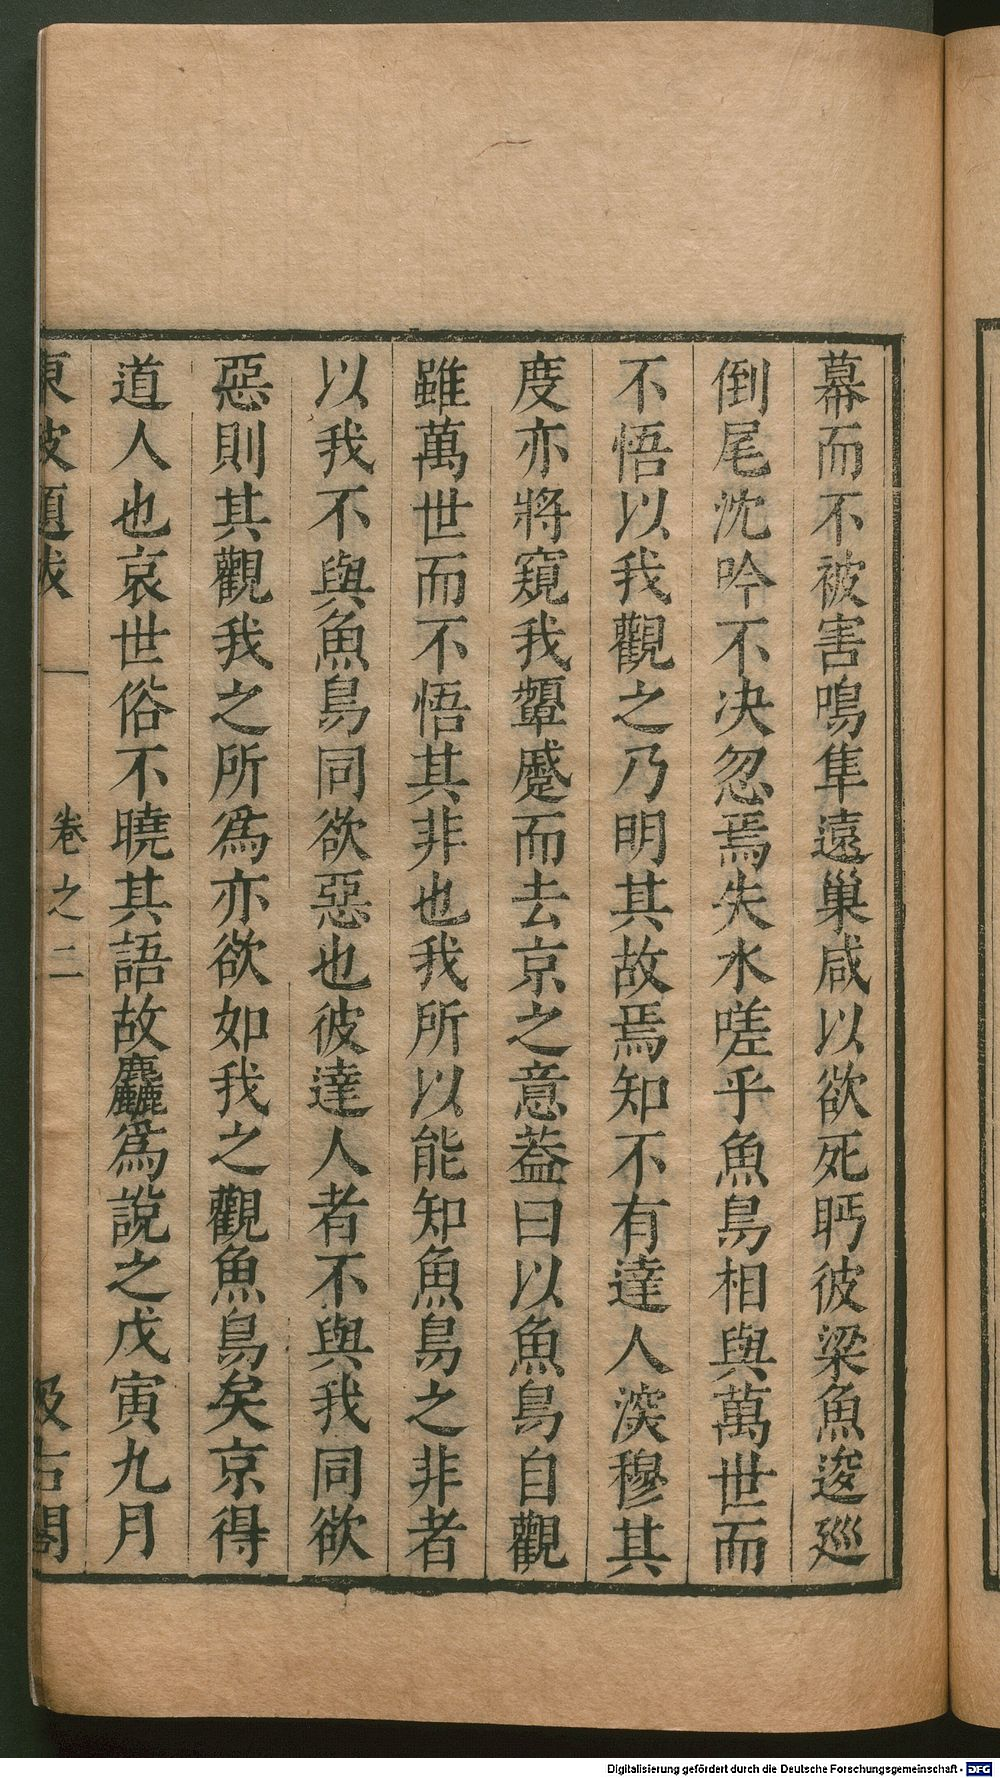 幕而不被害鳴隼遠巢咸以欲死眄彼梁魚逡巡
倒尾沈吟不決忽焉失水嗟乎魚鳥相與萬世而
不悟以我觀之乃明其故焉知不有達人深穆其
度亦將窺我顰蹙而去京之意葢曰以魚鳥自觀
雖萬世而不悟其非也我所以能知魚鳥之非者
以我不與魚鳥同欲惡也彼達人者不與我同欲
惡則其觀我之所爲亦欲如我之觀魚鳥矣京得
道人也哀世俗不曉其語故麤爲說之戊寅九月
東坡題跋 卷之二 汲古閣
Digitalisierung gefördert durch die Deutsche Forschungsgemeinschaft - DFG